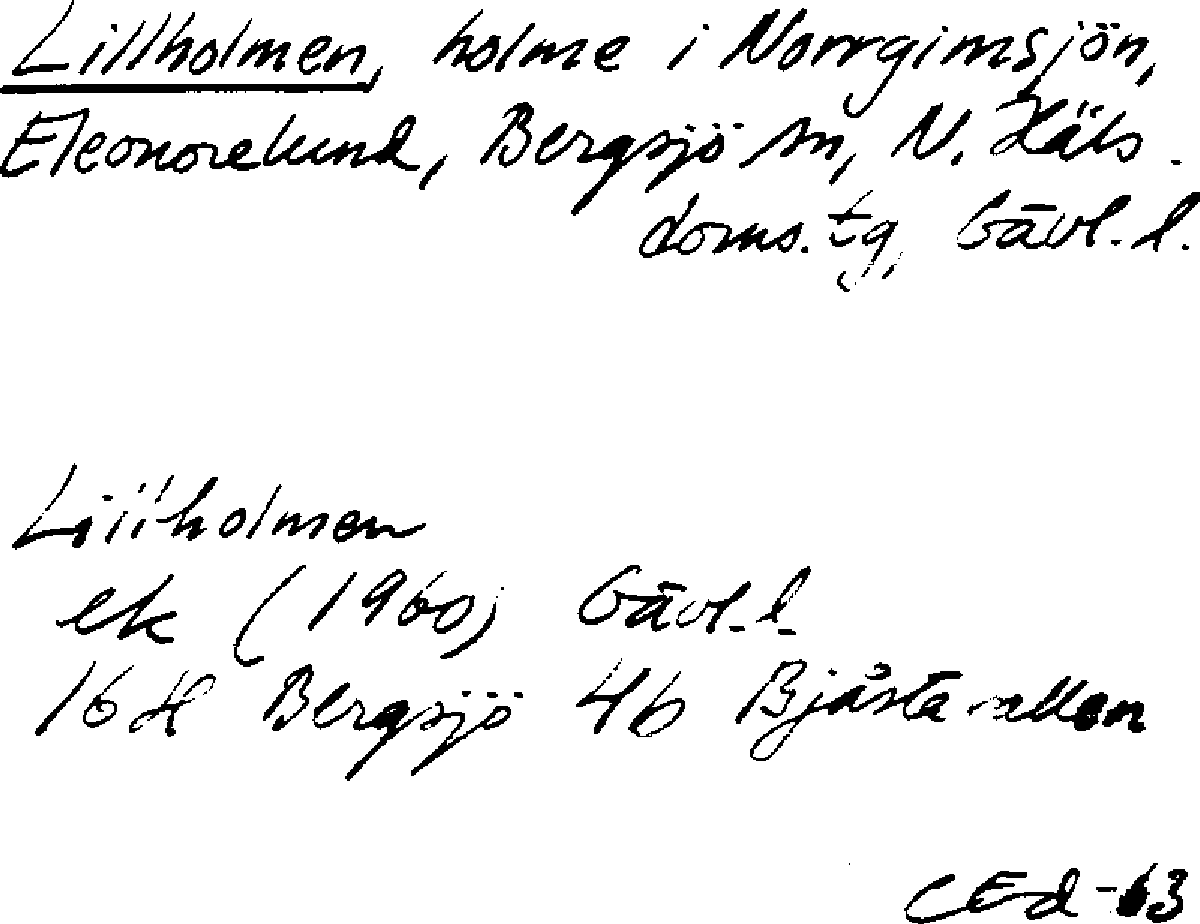 Lillholmen, holme i Norrgimsjön,
Eleonorelund, Bergsjö sn, N. Häls.
doms.tg, Gävl. l.
Lillholmen
ek (1960) Gävl. l.
16 H Bergsjö 4b Bjåsta-vallen
CEd -63